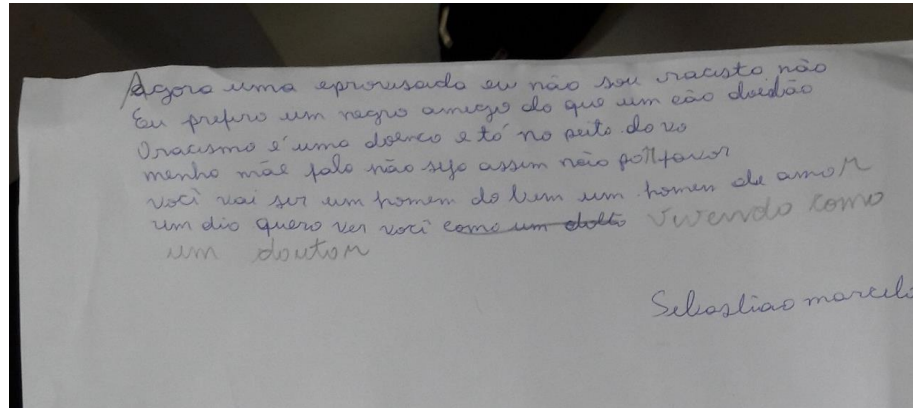 Agora uma eprovisada eu não sou racisto não
Eu prefiro um negro amigo do que um cão doidão
O racismo é uma doença e tó no peito do vo
menho mãe falo não sejo assim não por favor
você vai ser um homem do bem um homem de amor
um dia quero ver você como um dotto vivendo como
um doutor
Sebastiao marcelo